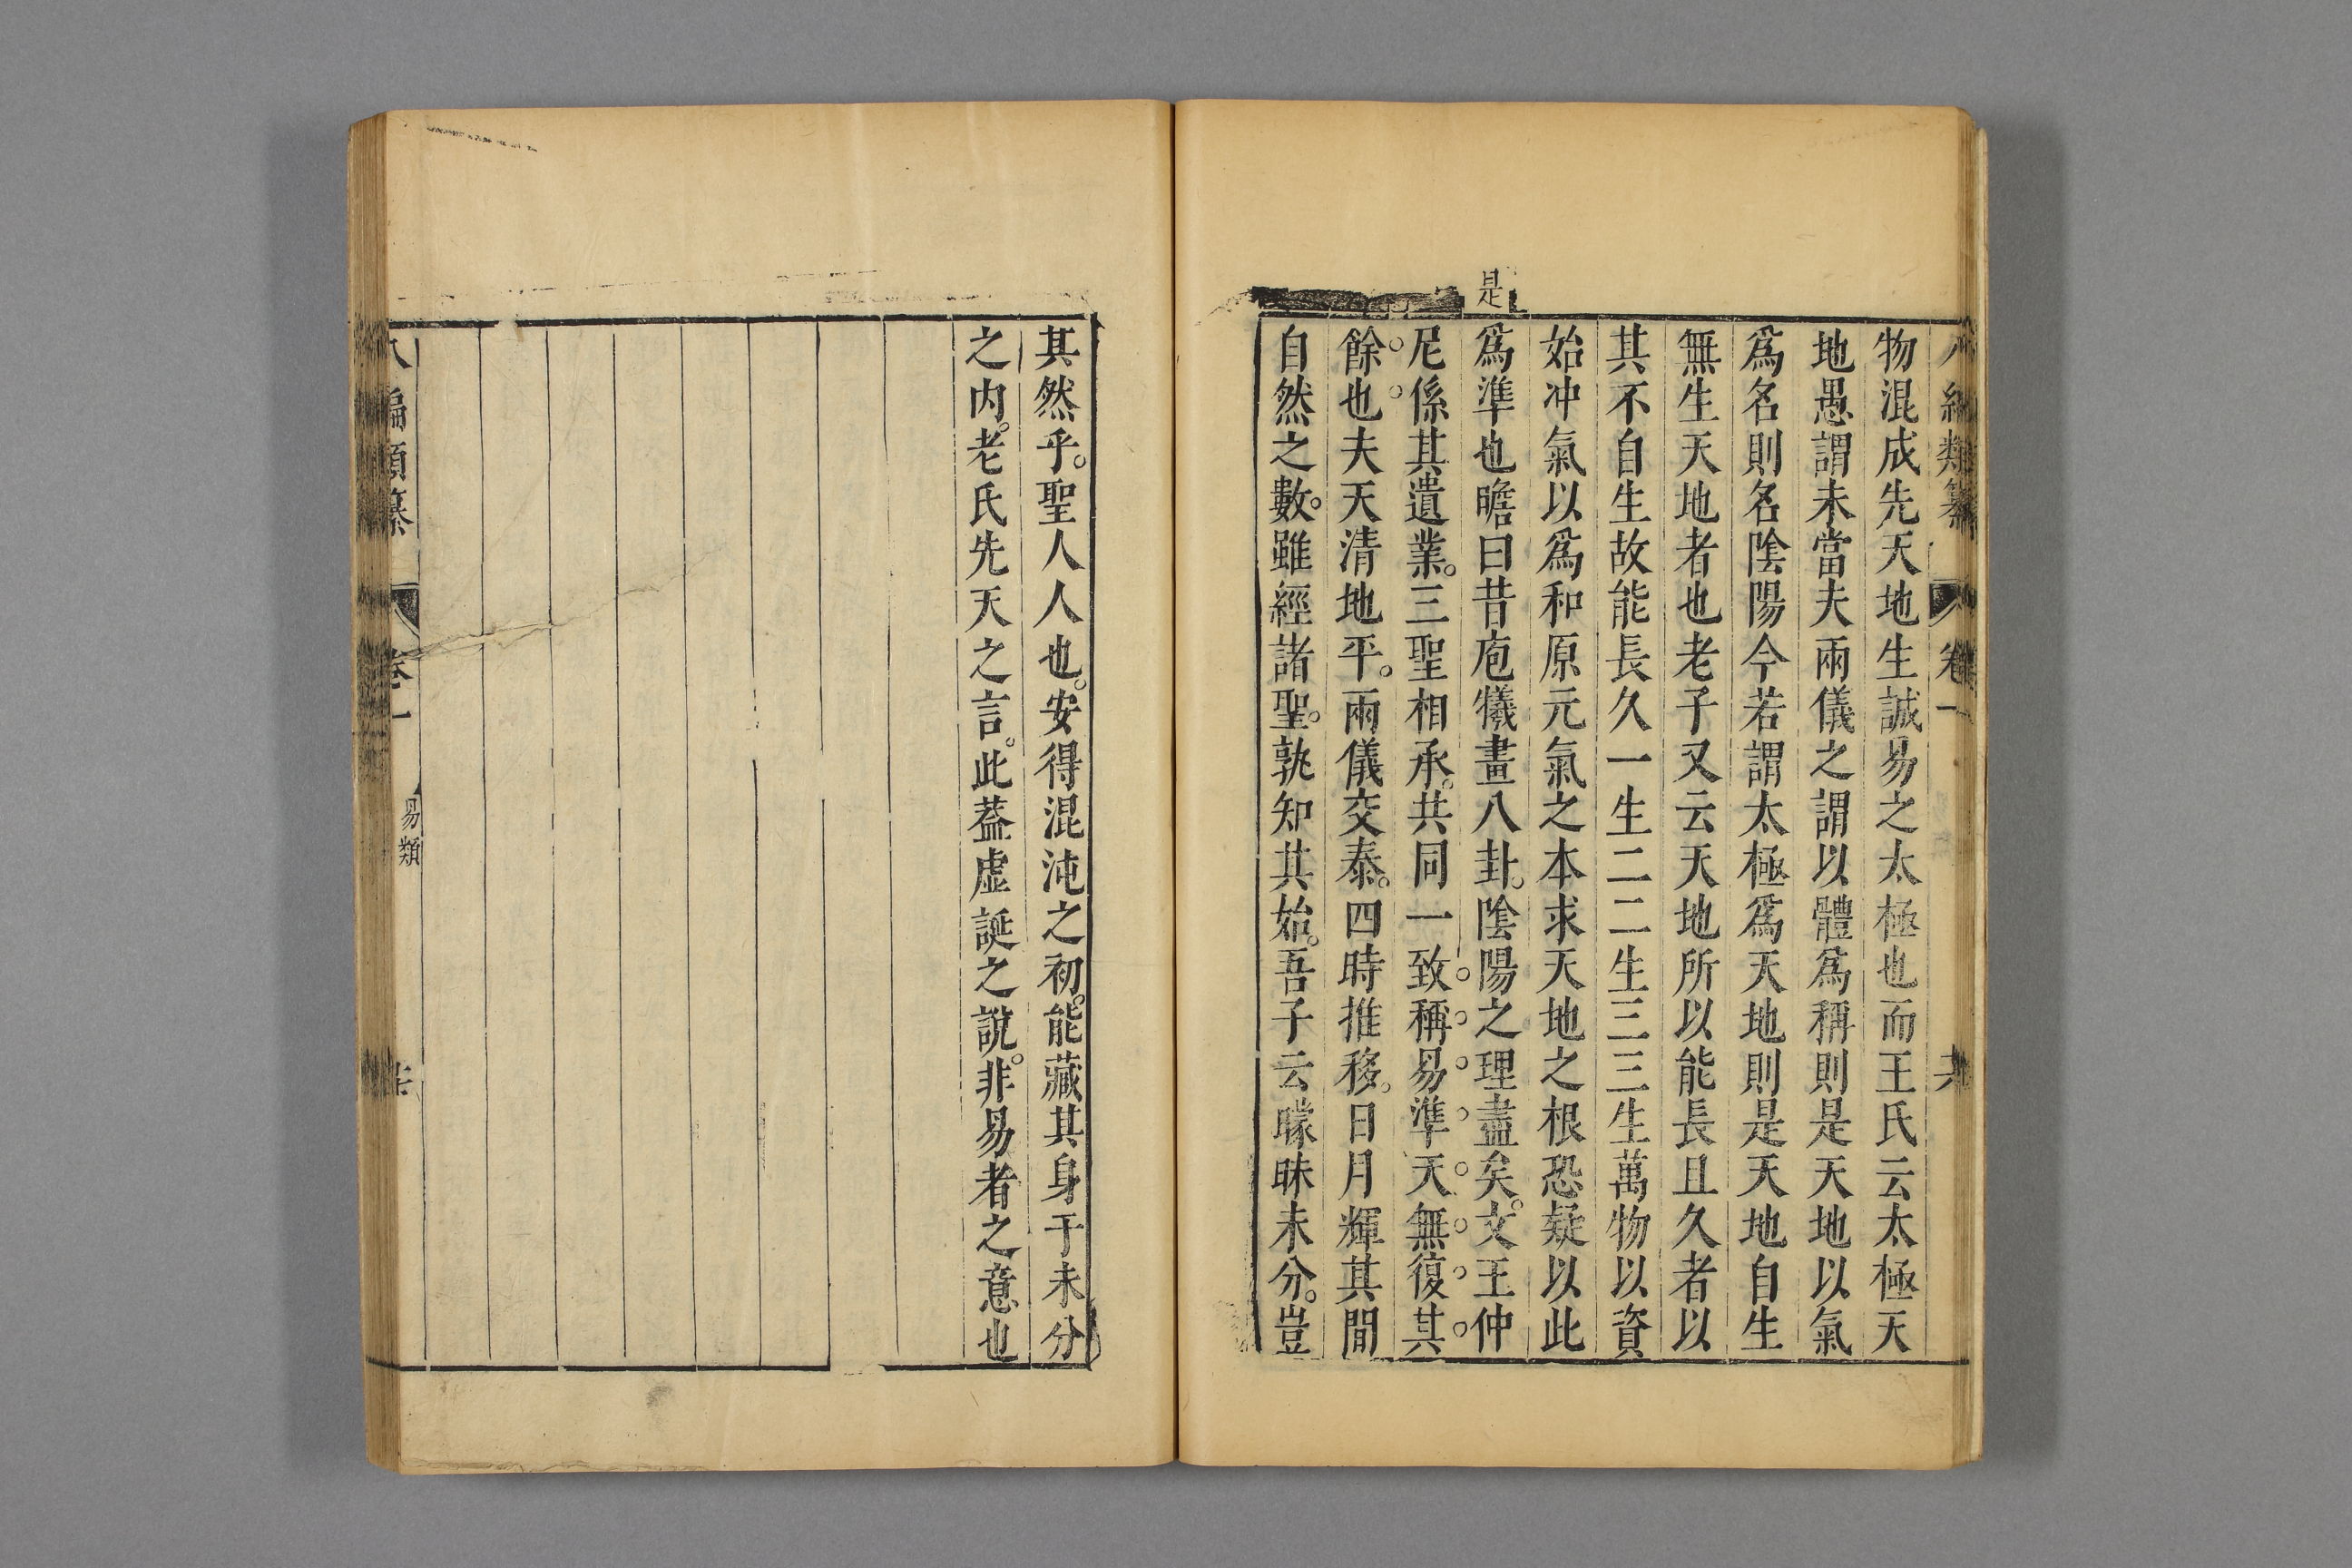 八編類纂 卷一 六
物混成先天地生誠易之太極也而王氏云太極天
地愚謂未當夫兩儀之謂以體爲稱則是天地以氣
爲名則名陰陽今若謂太極爲天地則是天地自生
無生天地者也老子又云天地所以能長且久者以
其不自生故能長久一生二二生三三生萬物以資
始冲氣以爲和原元氣之本求天地之根恐疑以此
是
爲準也瞻曰昔庖犧畫八卦。陰陽之理盡矣。文王仲
尼係其遺業。三聖相承。共同一致稱易準天無復其
餘也夫天清地平。兩儀交泰。四時推移。日月輝其間
自然之數。雖經諸聖。孰知其始。吾子云曚昧未分。豈
其然乎。聖人人也。安得混沌之初。能藏其身于未分
之内。老氏先天之言。此葢虛誕之說。非易者之意也
八編類纂 卷一 易類